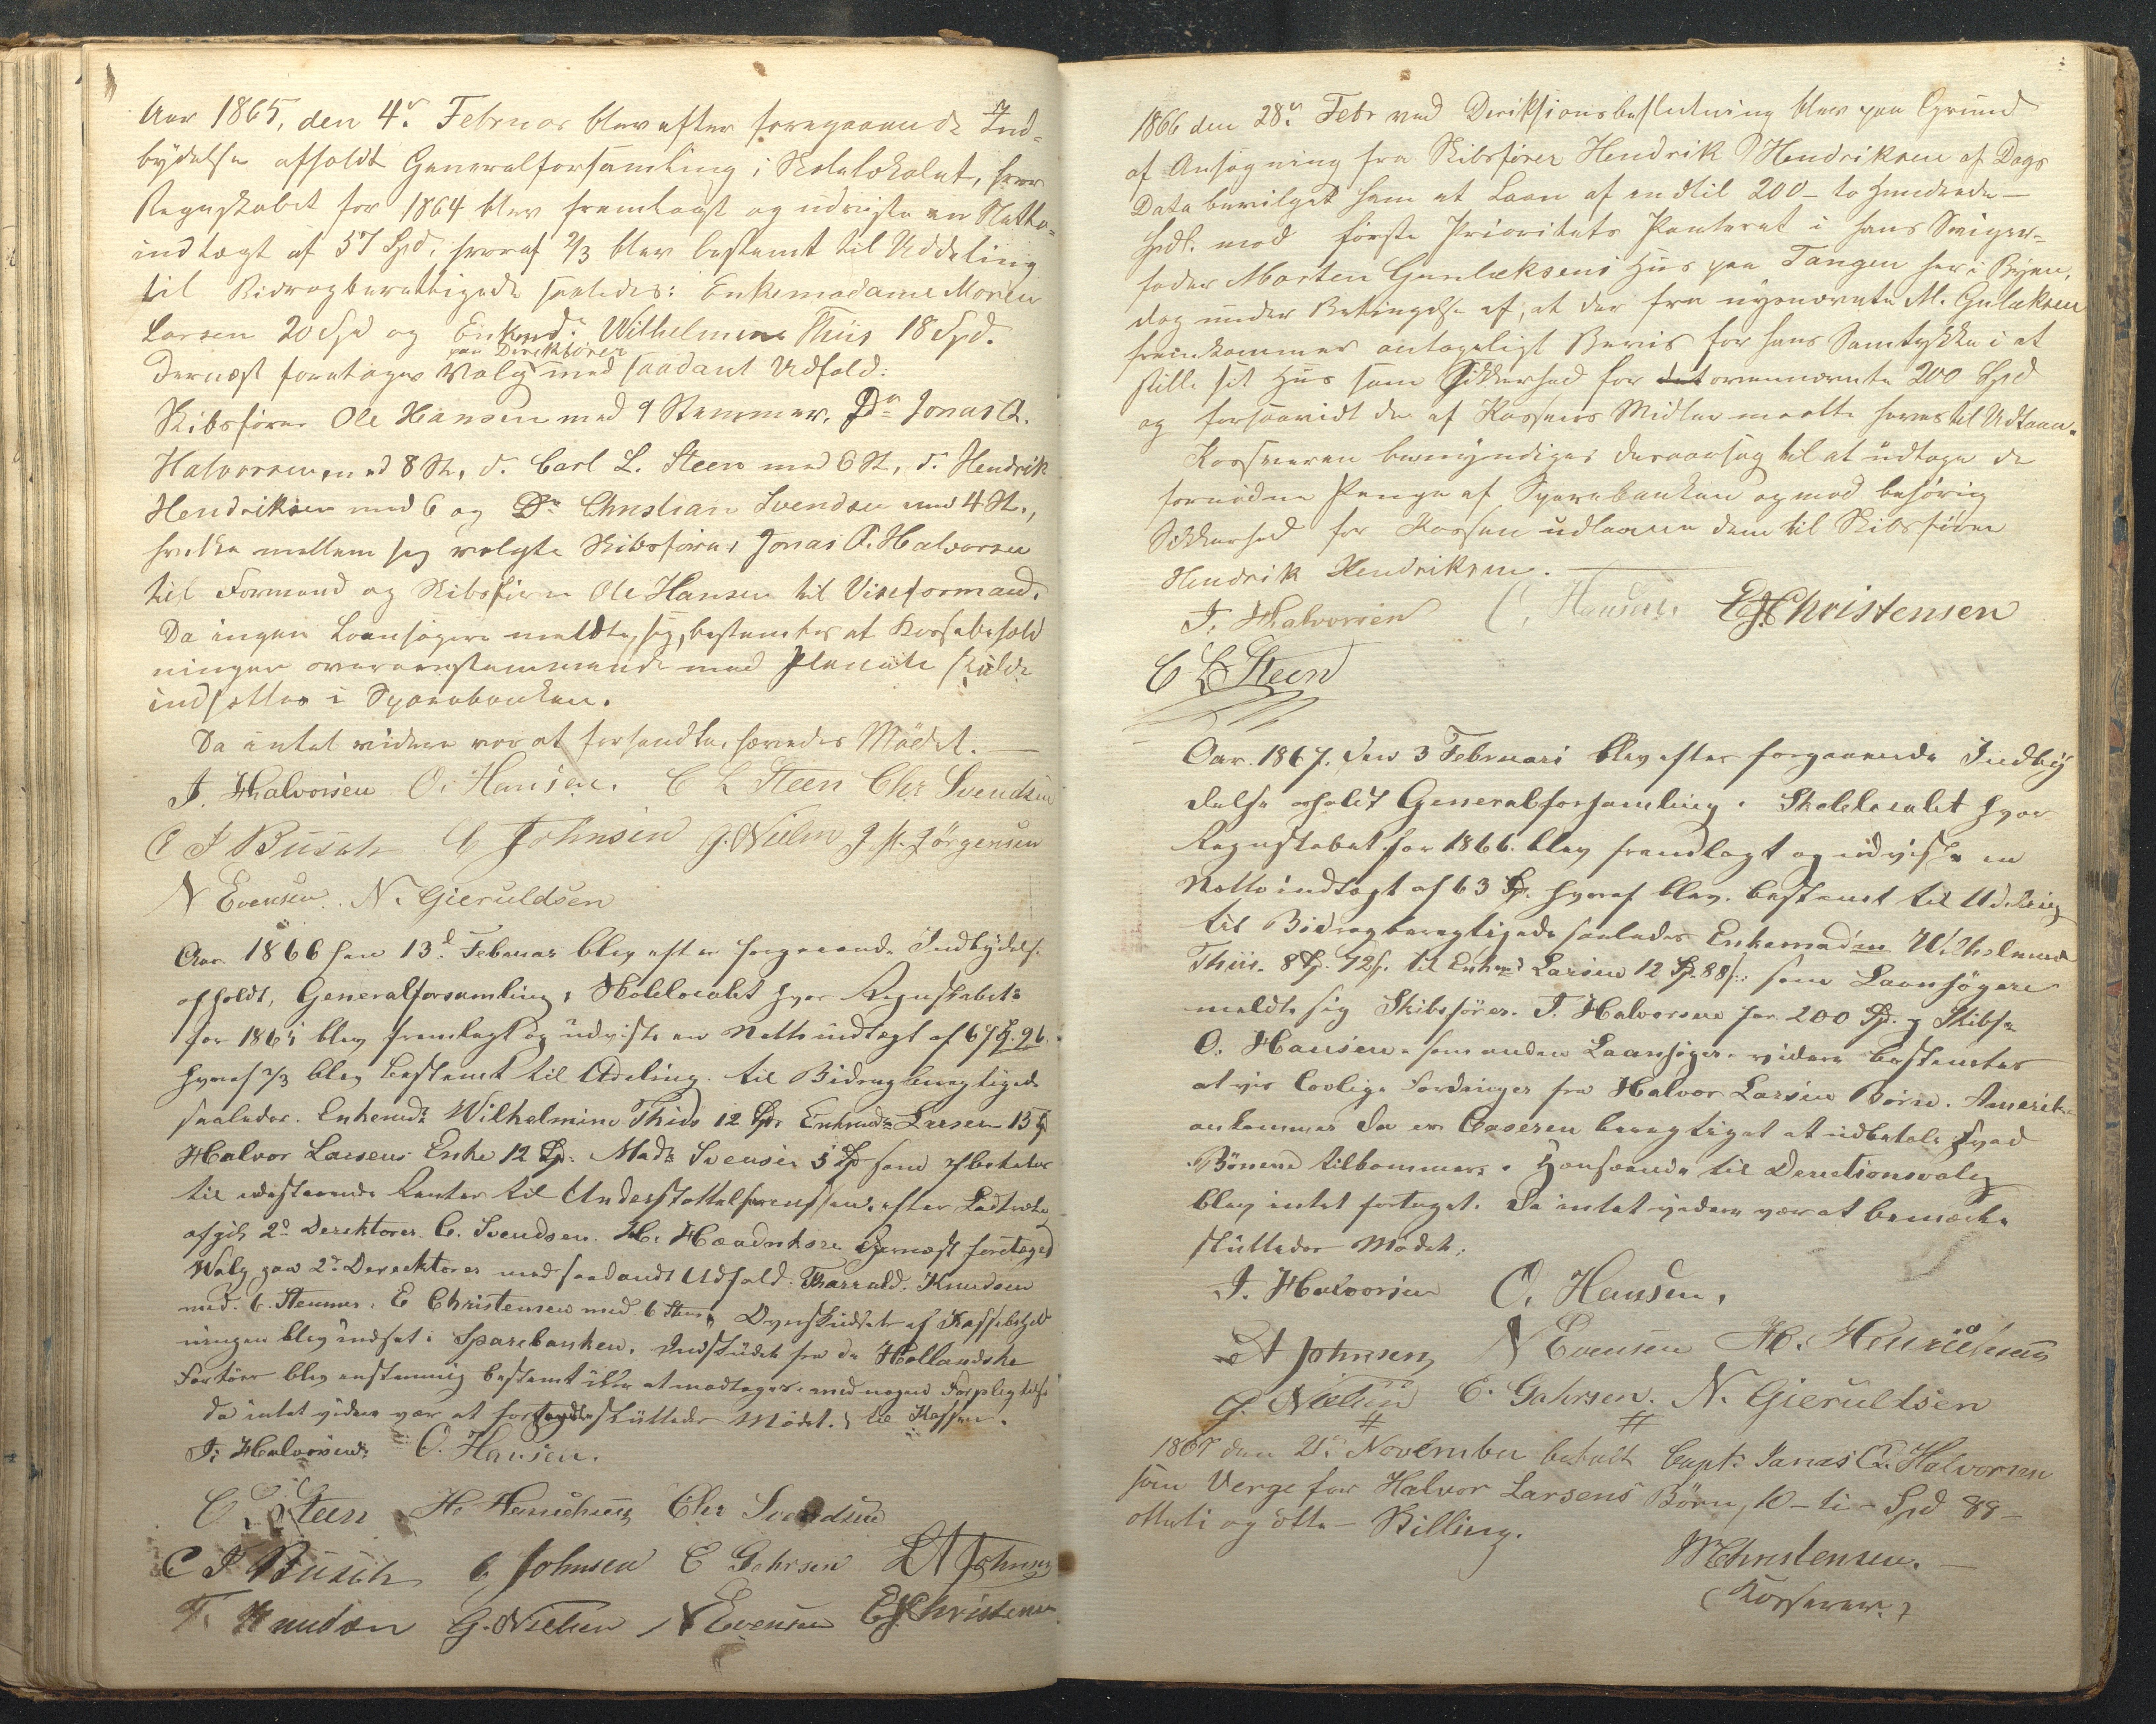 Aar 1865, den 4de Februar blev efter foregaaende Ind-
bydelse afholdt Generalforsamling i Skolelokalet, hvor
Regnskabet for 1864 blev fremlagt og udviste en Netto-
indtægt af 57 Spd, hvoraf 2/3 blev bestemt til Uddeling
til Bidragberettigede saaledes: Enkemadame Maren
Larsen 20 Spd og Enkmd. Wilhelmine Thiis 18 Spd.
Dernæst foretoges Valg paa Direktører med saadant Udfald:
Skibsfører Ole Hansen med 9 Stemmer, Do Jonas A.
Halvorsen med 8 St, d. Carl L. Steen med 6 St, d. Hendrik
Hendriksen med 6 og Do Christian Svendsen med 4 St.,
hvilke mellem sig valgte Skibsfører Jonas A. Halvorsen
til Formand og Skibsfører Ole Hansen til Viseformand.
Da ingen Laansøgere meldte sig, bestemtes at Kassebehold
ningen overensstemmende med Planens skulde
indsættes i Sparebanken.
Da intet videre var at forhandle, hævedes Mødet.
J. Halvorsen O. Hansen. C L Steen Chr Svendsen
C J Busch C Johnsen G. Nielsen J. H. Jörgensen
N Evensen. N. Gieruldsen
Aar 1866 den 13d Februar blev efter forgaaende Indbydelse
afholdt, Generalforsamling i Skolelocalet hvor Regnskabet
for 1865 blev fremlagt og udviste en Nettoindtægt af 67 Sp. 96
hvoraf 2/3 blev bestemt til Udeling til Bidragberegtigede
saaledes. Enkemd. Wilhelmine Thiis 12 Spd Enkemd. Larsen 15 Sp
Halvor Larsens Enke 12 Sp. Mad. Svensen 5 Sp som
til udestaaende Renter til efter
afgik 2de Derektører. C. Svendsen. H. Hendriksen Dernæst foretoges
Valg paa 2de Derecktører med saadandt Udfald: Tharrald. Knudsen
med. 6 Stemmer, E Christensen med 6 Stem, Overskudet af Kassebehold
ningen blev indsat i Sparebanken. Indskudet fra de Hollandske
blev enstemmig bestemt ikke at modtages med nogen Forpligtelse
da intet videre var at forhandle sluttedes Mødet. til Kassen.
J. Halvorsen O. Hansen.
C L Steen H. Henrichsen Chr Svendsen
C J Busch C Johnsen C Gahrsen A Johnsen
T. Knudsen G. Nielsen N Evensen E J Christensen
1866 den 28de Febr ved Direktionsbeslutning blev paa Grund
af Ansøgning fra Skibsfører Hendrik Hendriksen af Dags
Dato bevilget ham et Laan af indtil 200 - to hundrede -
Spdl. mod første Prioritets Panteret i hans Sviger-
fader Morten Gunlaksens Hus paa Tangen her i Byen,
dog under Betingelse af, at der fra nysnævnte M. Gulaksen
fremkommer antageligt Bevis for hans Samtykke i at
stille sit Hus som Sikkerhed for det ovennævnte 200 Spd
og forsaavidt der af Kassens Midler maatte haves til Udlaan.
Kassereren bemyndiges desaarsag til at udtage de
fornødne Penge af Sparebanken og mod behørig
Sikkerhed for Kassen udlaane dem til Skibsfører
Hendrik Hendriksen.
J. Halvorsen O. Hansen. E J Christensen
C L Steen
Aar. 1867. den 3 Februari blev efter forgaaende Indby
delse afholdt Generalforsamling i Skolelocalet hvor
Regnskabet for 1866. blev fremlagt og udviste en
Nettoindtægt af 63 Sp. hvoraf blev. bestemt til Udeling
til Bidragberegtigede saaledes Enkemadm Wilhelmine
Thiis. 8 Sp. 72 s. til Enkemd Larsen 12 Sp. 88 s. som Laansøgere
meldte sig Skibsfører. J. Halvorsen for. 200 Sp. og Skibsf.
O. Hansen. som anden Laansøger. videre bestemtes
at vis lovlige Fordringer fra Halvor Larsens Børn. Amerika
ankommer da er Casseren beregtiget at udbetale hvad
Bønene tilkommer. Henseende til Derectionsvalg
blev intet fortaget. Da intet videre var at bemærke
sluttedes Mødet.
J. Halvorsen O. Hansen.
A Johnsen N Evensen H. Henrichsen
G. Nielsen C. Gahrsen. N. Gieruldsen
1867 den 21de November betalt Capt. Jonas A. Halvorsen
som Verge for Halvor Larsens Børn, 10 - ti - Spd 88 -
otteti og otte - Skilling.
M Christensen.
(Kasserer.)